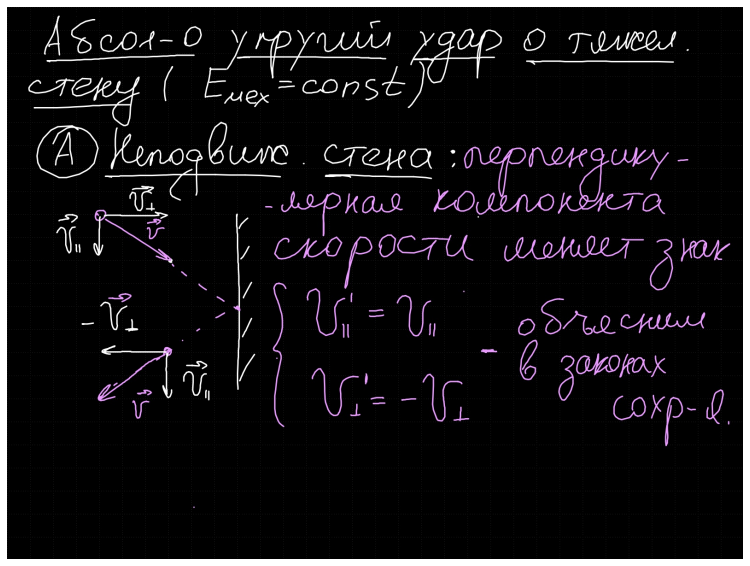 Абсол-о упругий удар о тяжел.
стену ( Eмех = const )
А Неподвиж. стена : перпендику-
-лярная компонента
скорости меняет знак
v⃗⊥
v⃗
v⃗||
v'|| = v||
- v⃗⊥
v⃗
v⃗||
v'⊥ = - v⊥
- объясним
в законах
сохр-я.